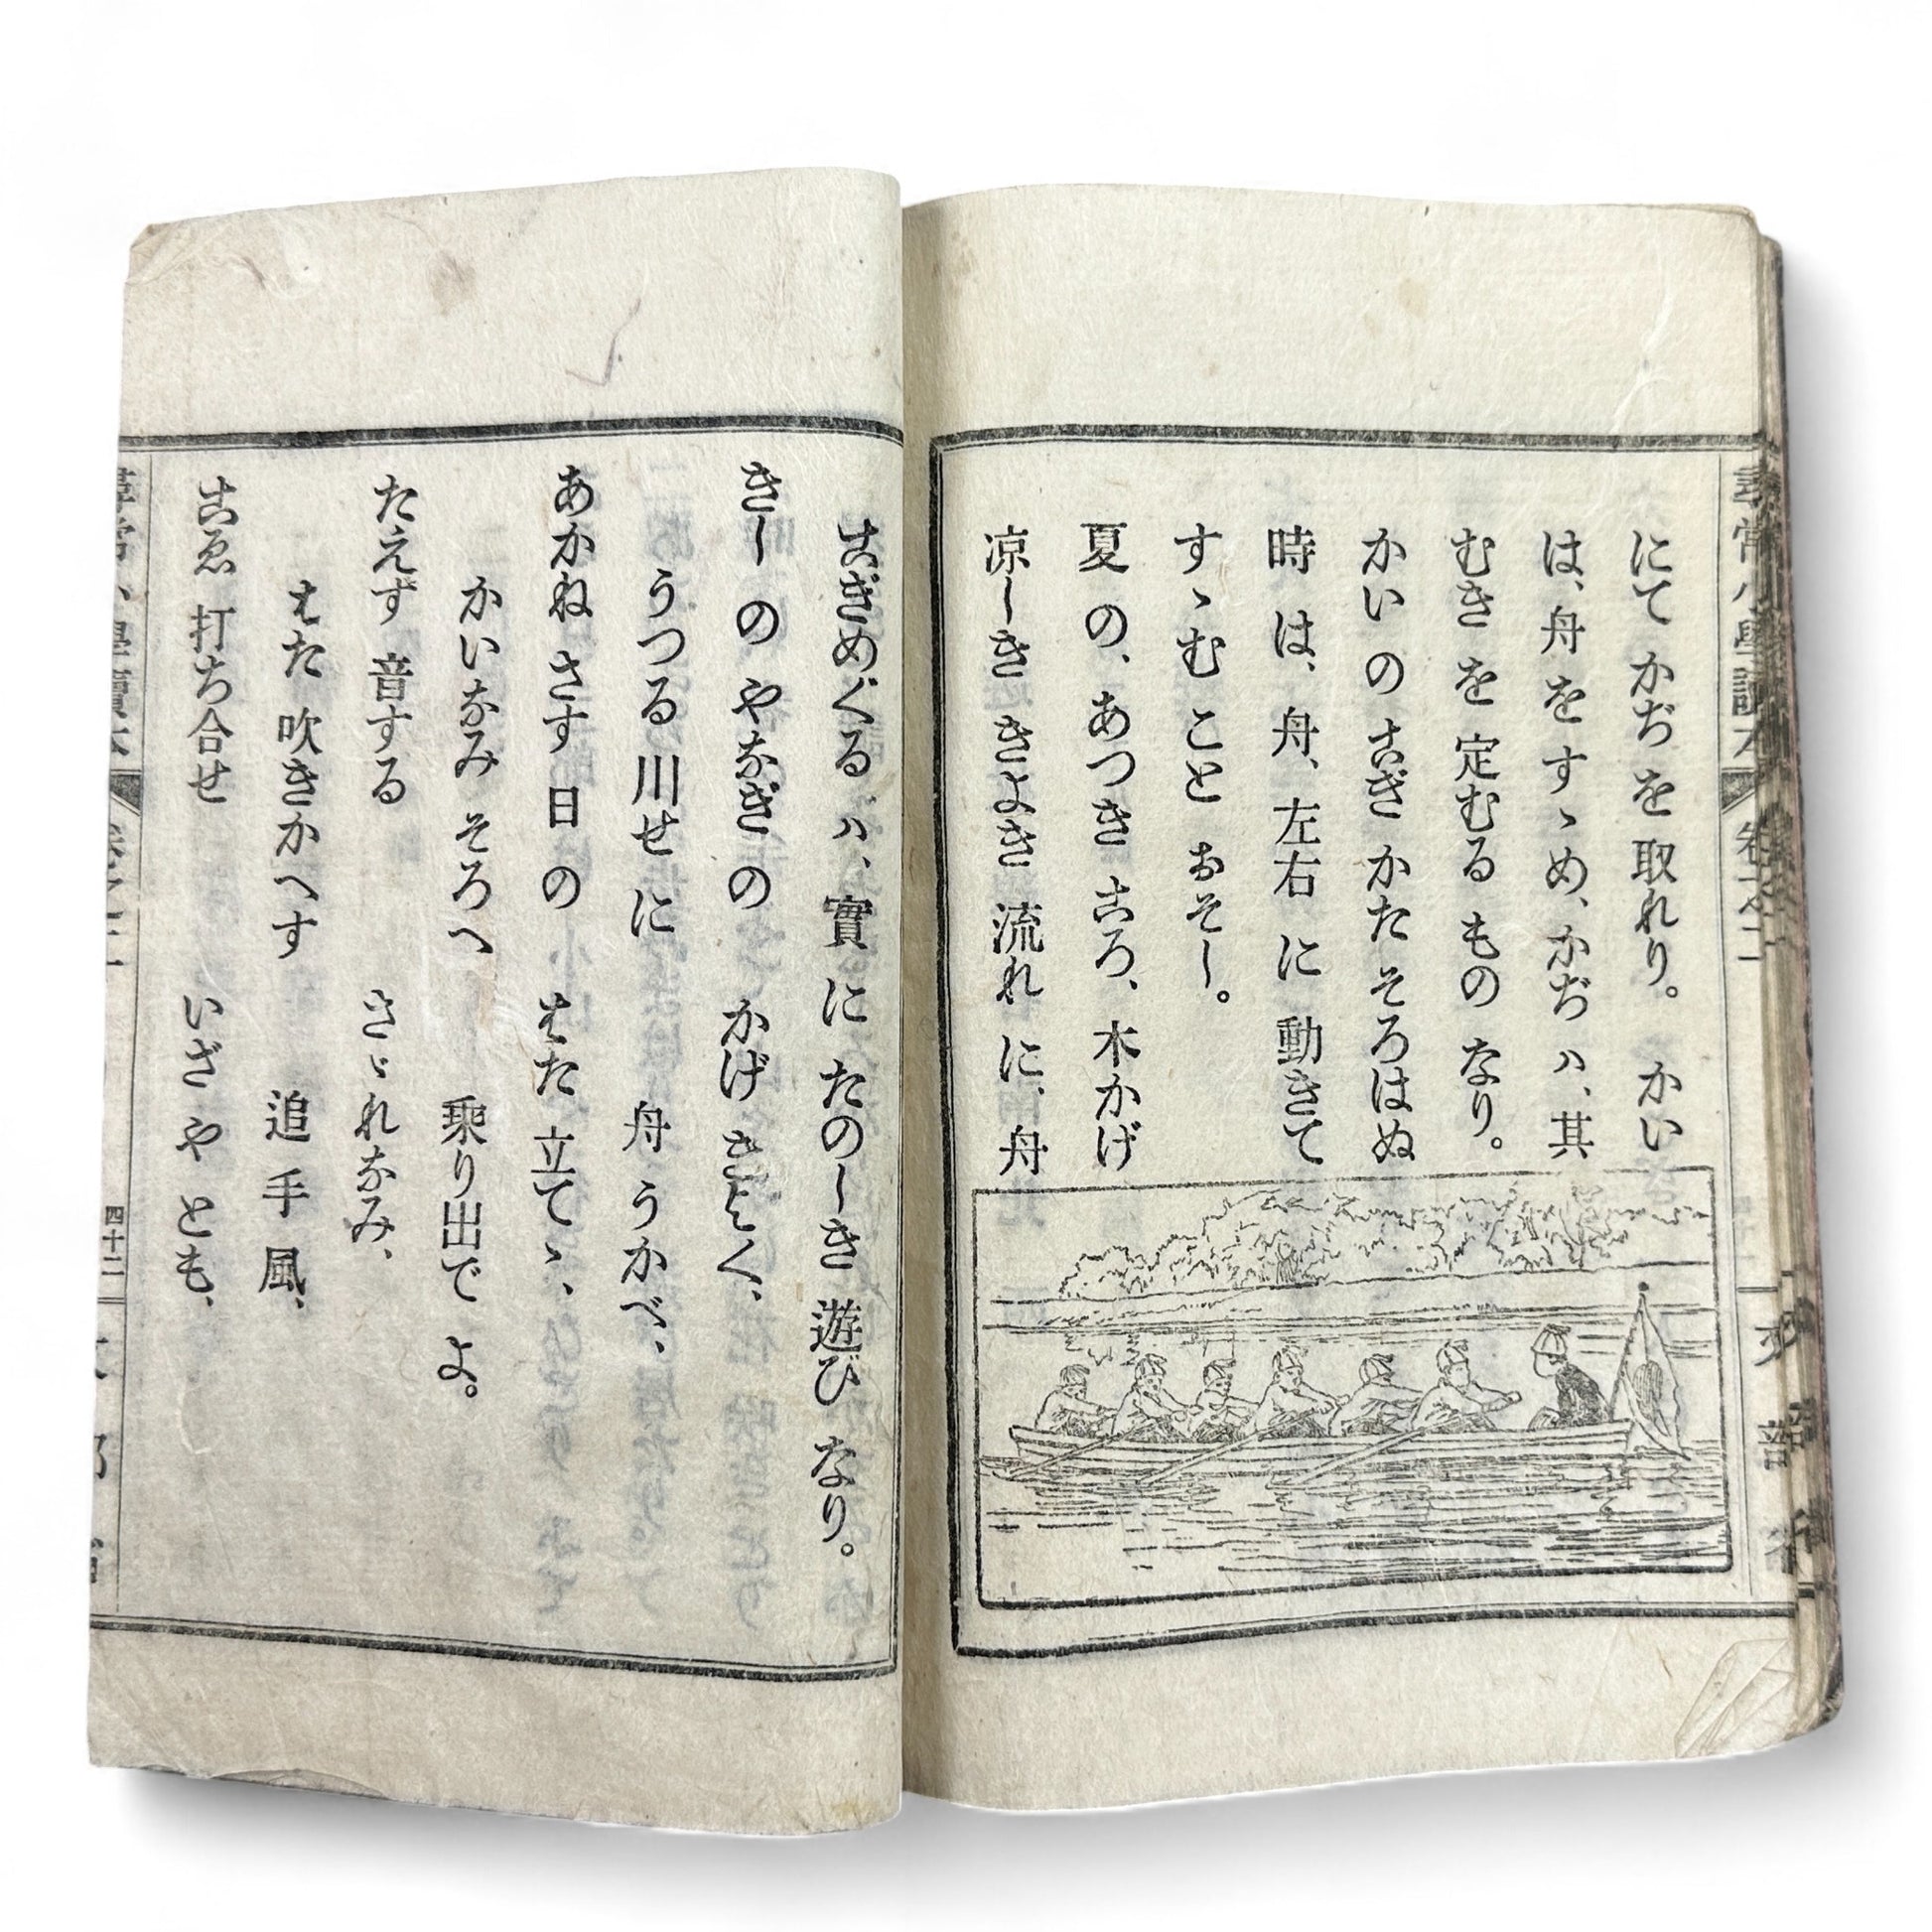 尋常小學讀本 卷之二
にて かぢ を 取れり。 かい
は、舟 を すゝめ、かぢ ハ、其
むき を 定むる もの なり。
かい の こぎ かた そろはぬ
時 は、舟、左右 に 動きて
すゝむ こと おそし。
夏 の、あつき ころ、木かげ
凉しき きよき 流れ に、舟
こぎめぐる ハ、實 に たのしき 遊び なり。
きし の やなぎ の かげ きよく、
うつる 川せ に 舟 うかべ、
あかね さす 日 の はた 立てゝ、
かいなみ そろへ 乘り出で よ。
たえず 音する さゞれなみ、
はた 吹きかへす 追手風、
こゑ 打ち合せ いざや とも、
四十二